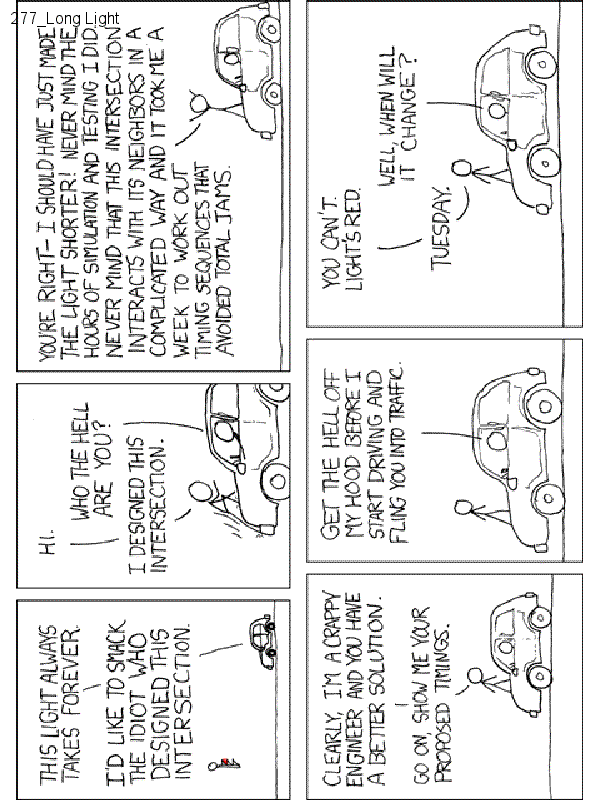 277_Long Light
THIS LIGHT ALWAYS
TAKES FOREVER.
I'D LIKE TO SMACK
THE IDIOT WHO
DESIGNED THIS
INTERSECTION.
HI.
WHO THE HELL
ARE YOU?
I DESIGNED THIS
INTERSECTION.
YOU'RE RIGHT- I SHOULD HAVE JUST MADE
THE LIGHT SHORTER! NEVER MIND THE
HOURS OF SIMULATION AND TESTING I DID.
NEVER MIND THAT THIS INTERSECTION
INTERACTS WITH ITS NEIGHBORS IN A
COMPLICATED WAY AND IT TOOK ME A
WEEK TO WORK OUT
TIMING SEQUENCES THAT
AVOIDED TOTAL JAMS.
CLEARLY, I'M A CRAPPY
ENGINEER AND YOU HAVE
A BETTER SOLUTION.
GO ON, SHOW ME YOUR
PROPOSED TIMINGS.
GET THE HELL OFF
MY HOOD BEFORE I
START DRIVING AND
FLING YOU INTO TRAFFIC.
YOU CAN'T.
LIGHT'S RED.
WELL, WHEN WILL
IT CHANGE?
TUESDAY.